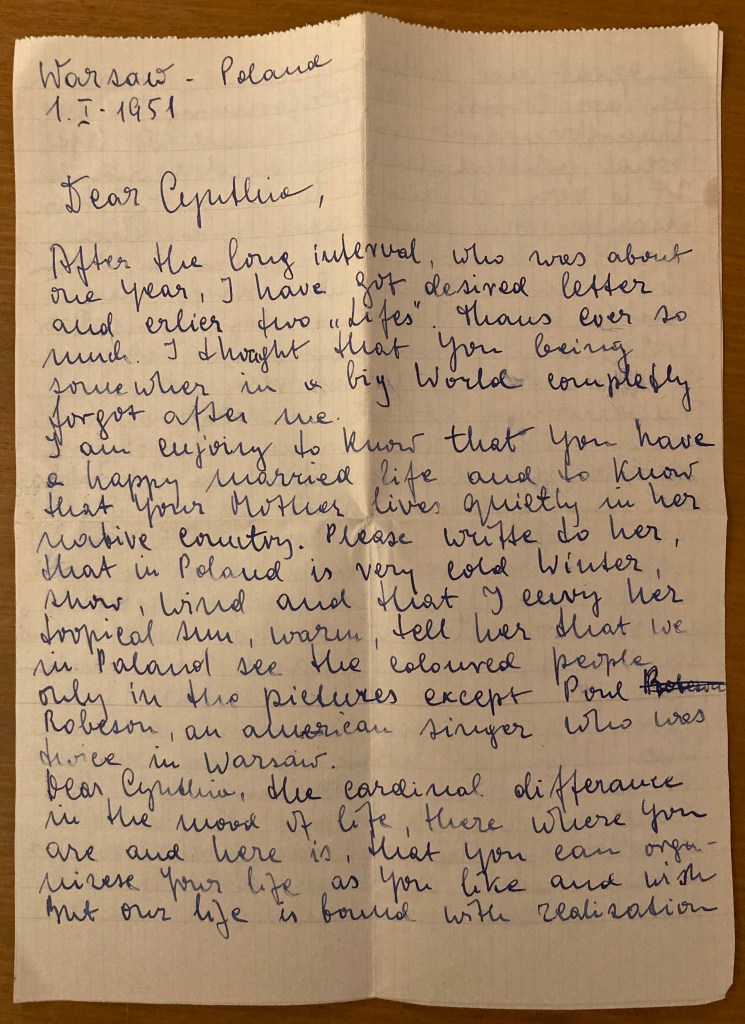 Warsaw - Poland
1.I.1951
Dear Cynthia,
After the long interval, who was about
one year, I have got desired letter
and erlier two „Lifes". Thans ever so
much. I thought that you being
somewher in a big World completly
forgot after me.
I am enjoing to know that you have
a happy married life and to know
that your Mother lives quietly in her
native country. Please writte to her,
that in Poland is very cold Winter,
snow, wind and that I envy her
tropical sun, warm, tell her that we
in Poland see the coloured people
only in the pictures except Poul Robeson
Robeson, an american singer who was
twice in Warsaw.
Dear Cynthia, the cardinal differance
in the mood of life, there where you
are and here is, that you can orga-
nizese your life as you like and wish
but our life is bound with realization